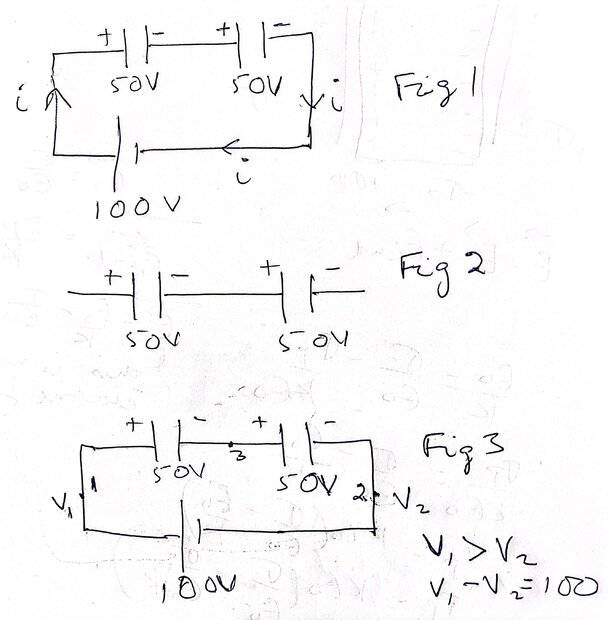 + - + -
50V 50V
i i Fig 1
i
100V
+ - + - Fig 2
50V 50V
+ - + - Fig 3
3
50V 50V
V₁ 1 2 V₂
100V
V₁ > V₂
V₁ - V₂ = 100